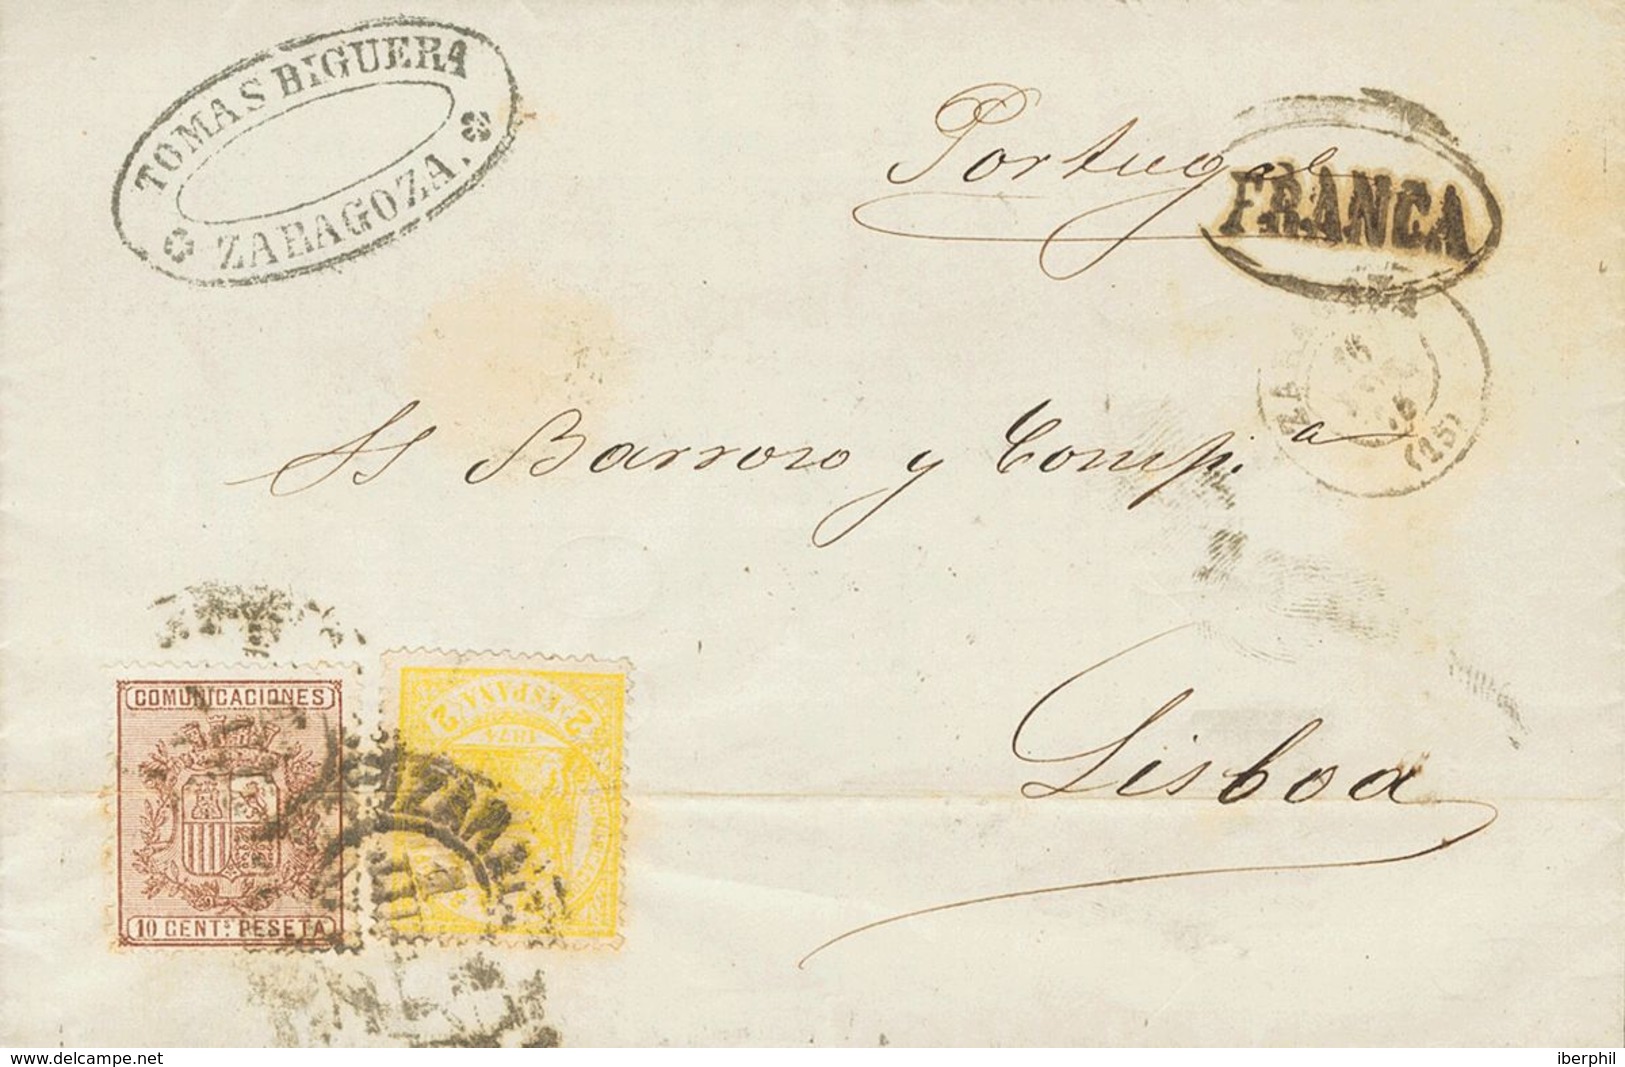 TOMAS BIGUERA
ZARAGOZA.
Portugal
FRANCA
(15)
SS Barrozo y Comp.ª
Lisboa
COMUNICACIONES
10 CENTS PESETA
2 ESPANA 2
1874
www.delcampe.net
iberphil